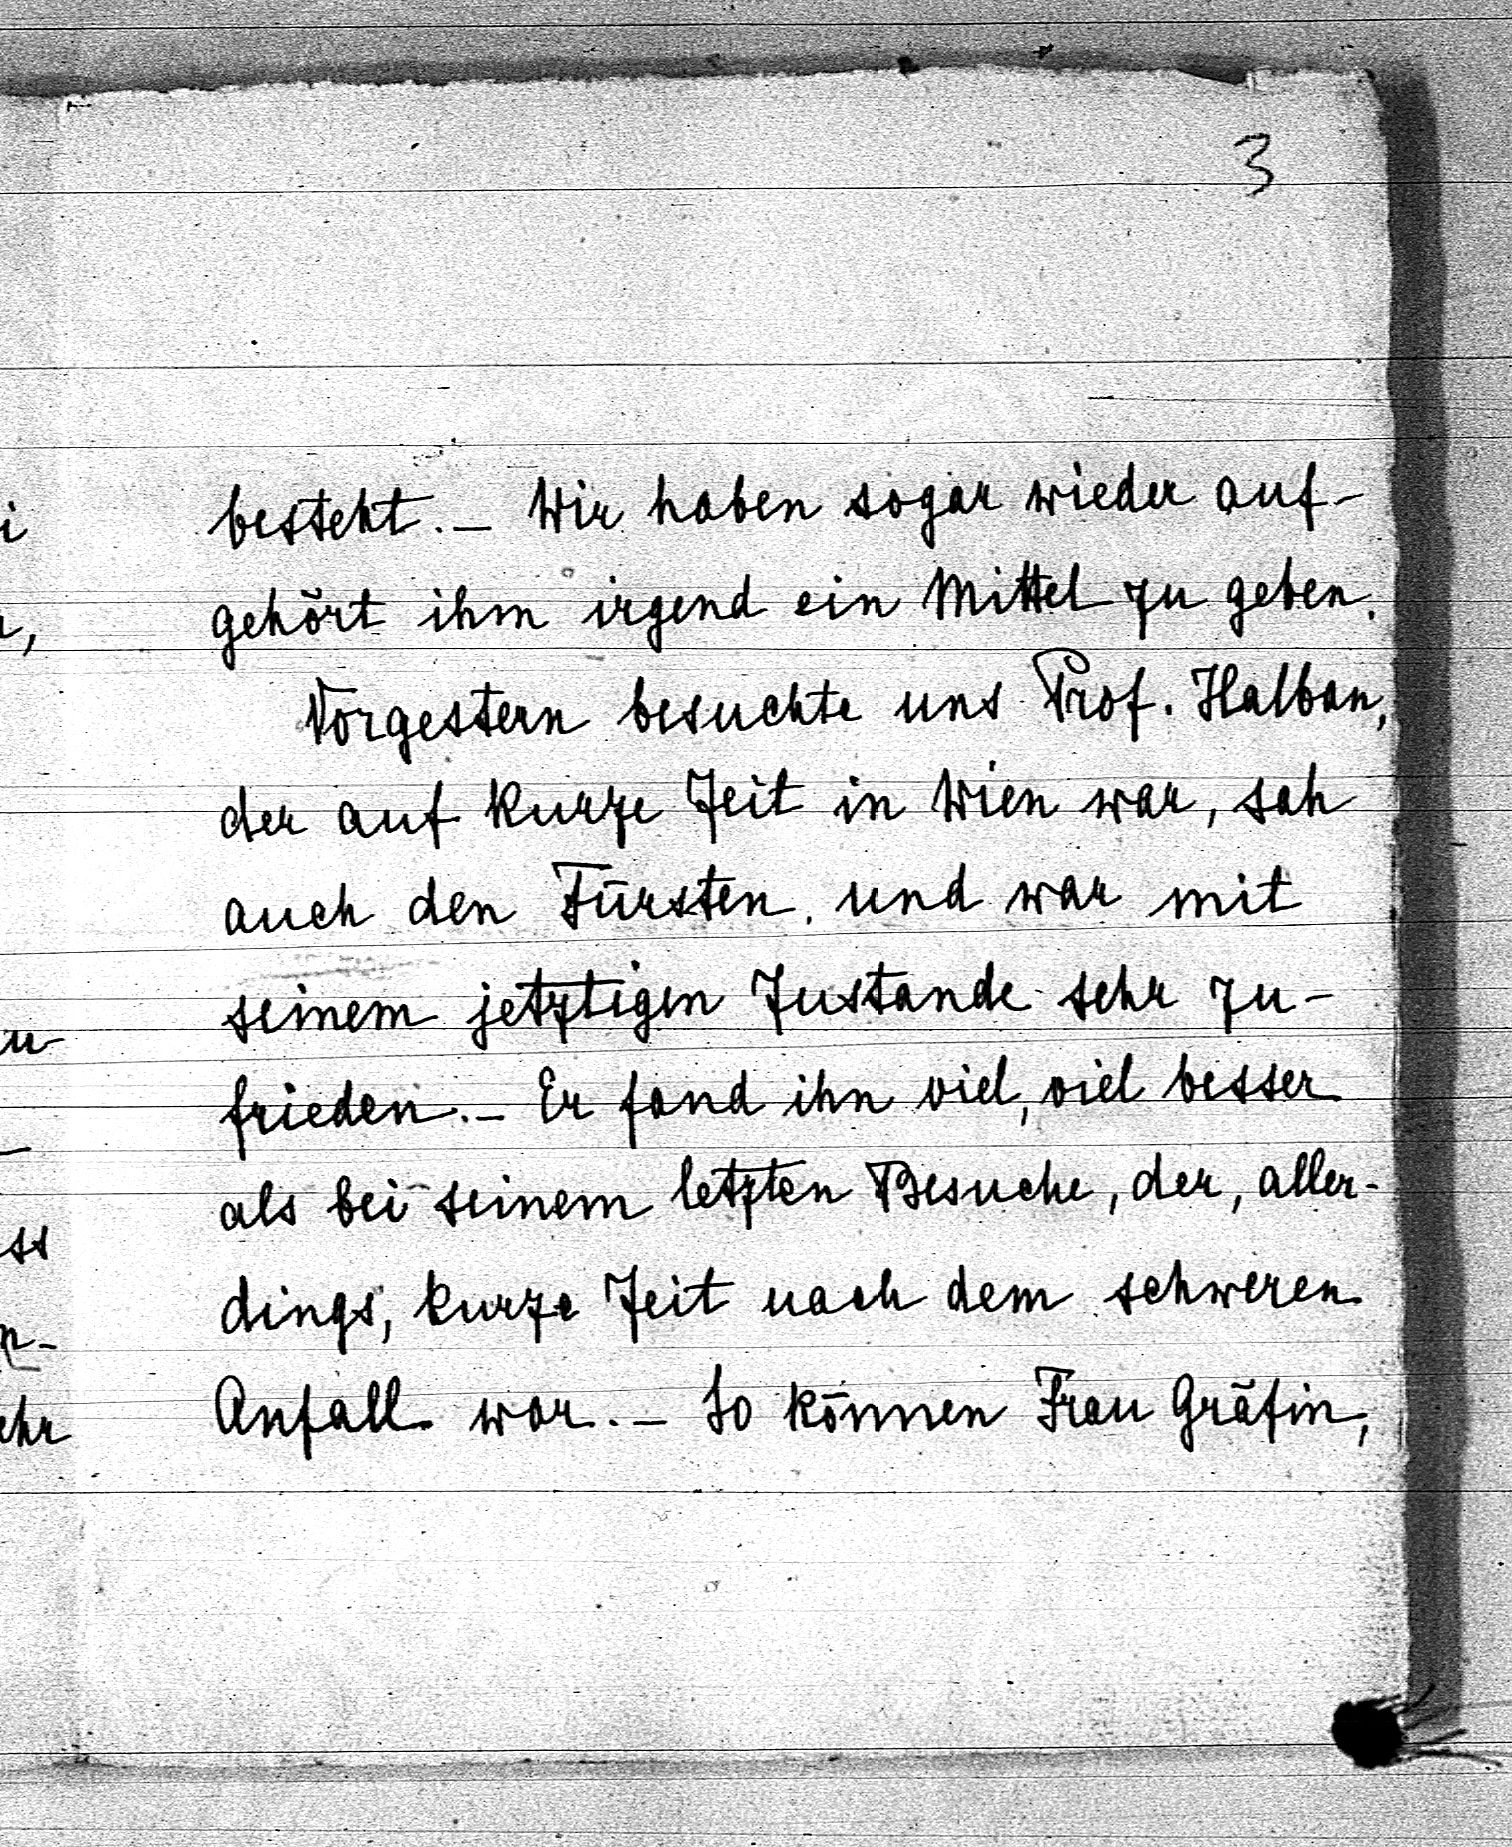 3
besteht. – Wir haben sogar wieder auf-
gehört ihm irgend ein Mittel zu geben.
Vorgestern besuchte uns Prof. Halban,
der auf kurze Zeit in Wien war, sah
auch den Fürsten, und war mit
seinem jetztigen Zustande sehr zu-
frieden. – Er fand ihn viel, viel besser
als bei seinem letzten Besuche, der, aller-
dings, kurze Zeit nach dem schweren
Anfall war. – So können Frau Gräfin,